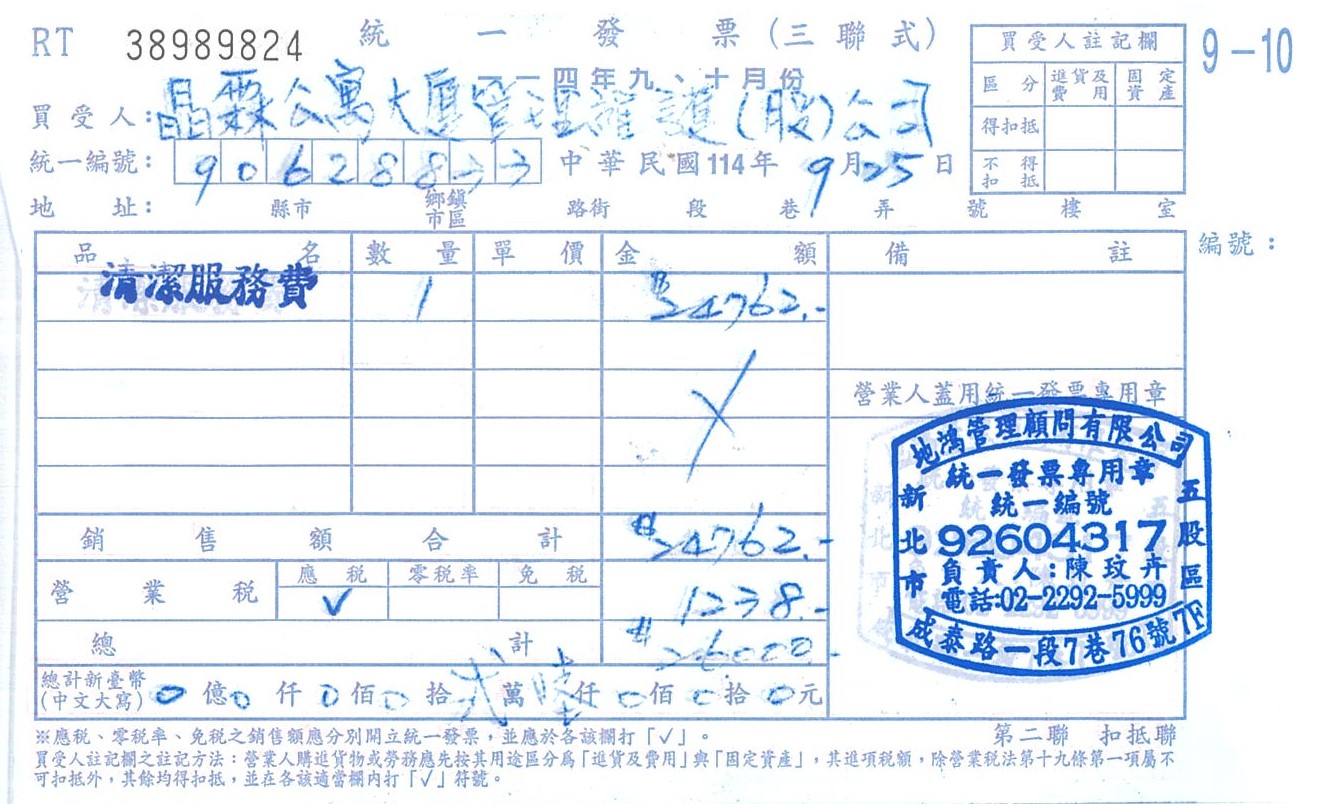 RT 38989824 統一發票(三聯式) 9-10
一一四年九、十月份
買受人:晶霖公寓大廈管理維護(股)公司
統一編號:90628833 中華民國114年9月25日
地址: 縣市 鄉鎮市區 路街 段 巷 弄 號 樓 室
買受人註記欄
區分 進貨及費用 固定資產
得扣抵
不得扣抵
編號:
品名 數量 單價 金額 備註
清潔服務費 1 $24762.-
營業人蓋用統一發票專用章
銷售額合計 $24762.-
營業稅 應稅 零稅率 免稅
✓ 1238.-
總計 $26000.-
總計新臺幣(中文大寫) 0億0仟0佰0拾貳萬陸仟0佰0拾0元
地鴻管理顧問有限公司
統一發票專用章
統一編號
92604317
負責人:陳玟卉
電話:02-2292-5999
新北市五股區
成泰路一段7巷76號7F
第二聯 扣抵聯
※應稅、零稅率、免稅之銷售額應分別開立統一發票,並應於各該欄打「✓」。
買受人註記欄之註記方法:營業人購進貨物或勞務應先按其用途區分為「進貨及費用」與「固定資產」,其進項稅額,除營業稅法第十九條第一項屬不
可扣抵外,其餘均得扣抵,並在各該適當欄內打「✓」符號。